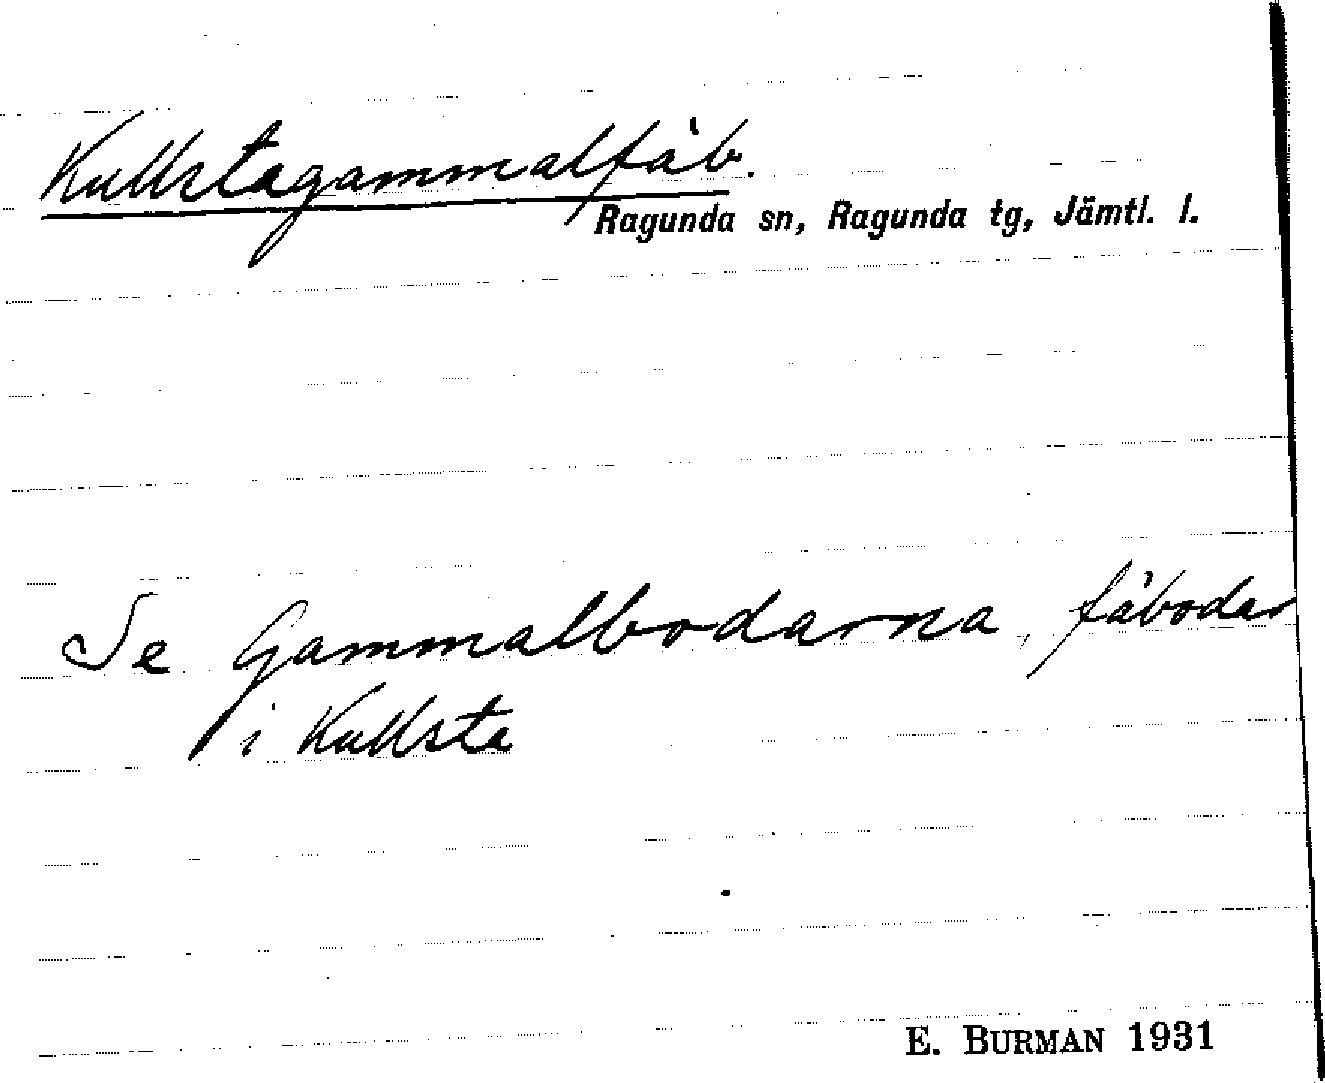 Kullstagammalfäb.
Ragunda sn, Ragunda tg, Jämtl. l.
Se Gammalbodarna, fäbodar
i Kullsta
E. BURMAN 1931